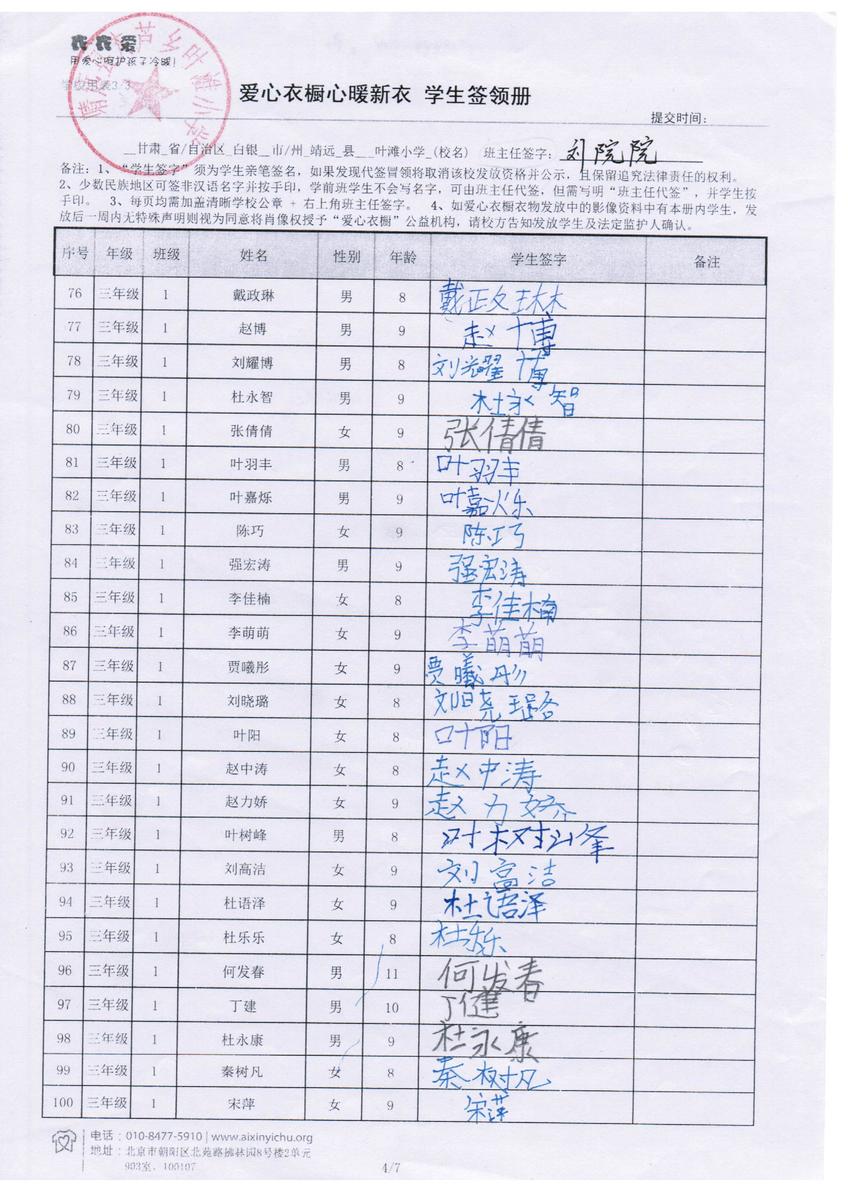 衣衣爱
用爱心呵护孩子冷暖!
学校用表3/3
爱心衣橱心暖新衣 学生签领册
提交时间:
__甘肃_省/自治区_白银__市/州_靖远_县___叶滩小学_(校名) 班主任签字: 刘院院
备注: 1、“学生签字”须为学生亲笔签名, 如果发现代签冒领将取消该校发放资格并公示, 且保留追究法律责任的权利。
2、少数民族地区可签非汉语名字并按手印, 学前班学生不会写名字, 可由班主任代签, 但需写明“班主任代签”, 并学生按
手印。 3、每页均需加盖清晰学校公章 + 右上角班主任签字。 4、如爱心衣橱衣物发放中的影像资料中有本册内学生, 发
放后一周内无特殊声明则视为同意将肖像权授予“爱心衣橱”公益机构, 请校方告知发放学生及法定监护人确认。
序号 年级 班级 姓名 性别 年龄 学生签字 备注
76 三年级 1 戴政琳 男 8 戴政琳
77 三年级 1 赵博 男 9 赵博
78 三年级 1 刘耀博 男 8 刘耀博
79 三年级 1 杜永智 男 9 杜永智
80 三年级 1 张倩倩 女 9 张倩倩
81 三年级 1 叶羽丰 男 8 叶羽丰
82 三年级 1 叶嘉烁 男 9 叶嘉烁
83 三年级 1 陈巧 女 9 陈巧
84 三年级 1 强宏涛 男 9 强宏涛
85 三年级 1 李佳楠 女 8 李佳楠
86 三年级 1 李萌萌 女 9 李萌萌
87 三年级 1 贾曦彤 女 9 贾曦彤
88 三年级 1 刘晓璐 女 8 刘晓璐
89 三年级 1 叶阳 女 8 叶阳
90 三年级 1 赵中涛 女 8 赵中涛
91 三年级 1 赵力娇 女 9 赵力娇
92 三年级 1 叶树峰 男 8 叶树峰
93 三年级 1 刘高洁 女 9 刘高洁
94 三年级 1 杜语泽 女 9 杜语泽
95 三年级 1 杜乐乐 女 8 杜乐乐
96 三年级 1 何发春 男 11 何发春
97 三年级 1 丁建 男 10 丁健
98 三年级 1 杜永康 男 9 杜永康
99 三年级 1 秦树凡 女 8 秦树凡
100 三年级 1 宋萍 女 9 宋萍
电话: 010-8477-5910 | www.aixinyichu.org
地址: 北京市朝阳区北苑路拂林园8号楼2单元
903室, 100107
4/7